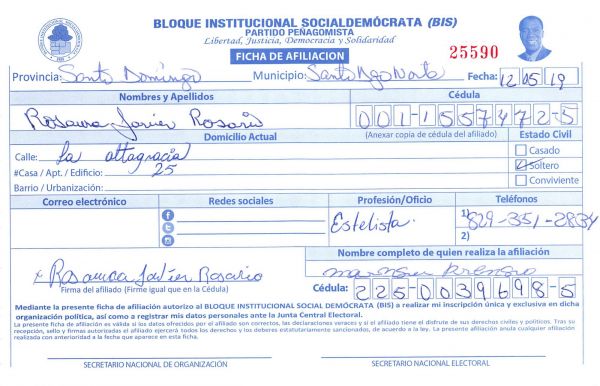 BLOQUE INSTITUCIONAL SOCIALDEMÓCRATA (BIS)
PARTIDO PEÑAGOMISTA
Libertad, Justicia, Democracia y Solidaridad
FICHA DE AFILIACION
25590
Provincia: Santo Domingo Municipio: Santo Dgo Norte Fecha: 12 05 19
Nombres y Apellidos Cédula
Rosaura Javier Rosario 001-1557472-5
Domicilio Actual (Anexar copia de cédula del afiliado) Estado Civil
Calle: La altagracia Casado
#Casa / Apt. / Edificio: 25 Soltero
Barrio / Urbanización: Conviviente
Correo electrónico Redes sociales Profesión/Oficio Teléfonos
Estelista. 1) 829-351-2834
2)
Nombre completo de quien realiza la afiliación
x Rosaura Javier Rosario
Firma del afiliado (Firme igual que en la Cédula) Cédula: 225-0039698-5
Mediante la presente ficha de afiliación autorizo al BLOQUE INSTITUCIONAL SOCIAL DEMÓCRATA (BIS) a realizar mi inscripción única y exclusiva en dicha
organización política, así como a registrar mis datos personales ante la Junta Central Electoral.
La presente ficha de afiliación es válida si los datos ofrecidos por el afiliado son correctos, las declaraciones veraces y si el afiliado tiene el disfrute de sus derechos civiles y políticos. Tras su
recepción, sello y firmas autorizadas el afiliado ejercerá todos los derechos y los deberes estatutariamente sancionados, de acuerdo a la ley. La presente afiliación anula cualquier afiliación
realizada con anterioridad a la fecha que aparece en esta ficha.
SECRETARIO NACIONAL DE ORGANIZACIÓN SECRETARIO NACIONAL ELECTORAL